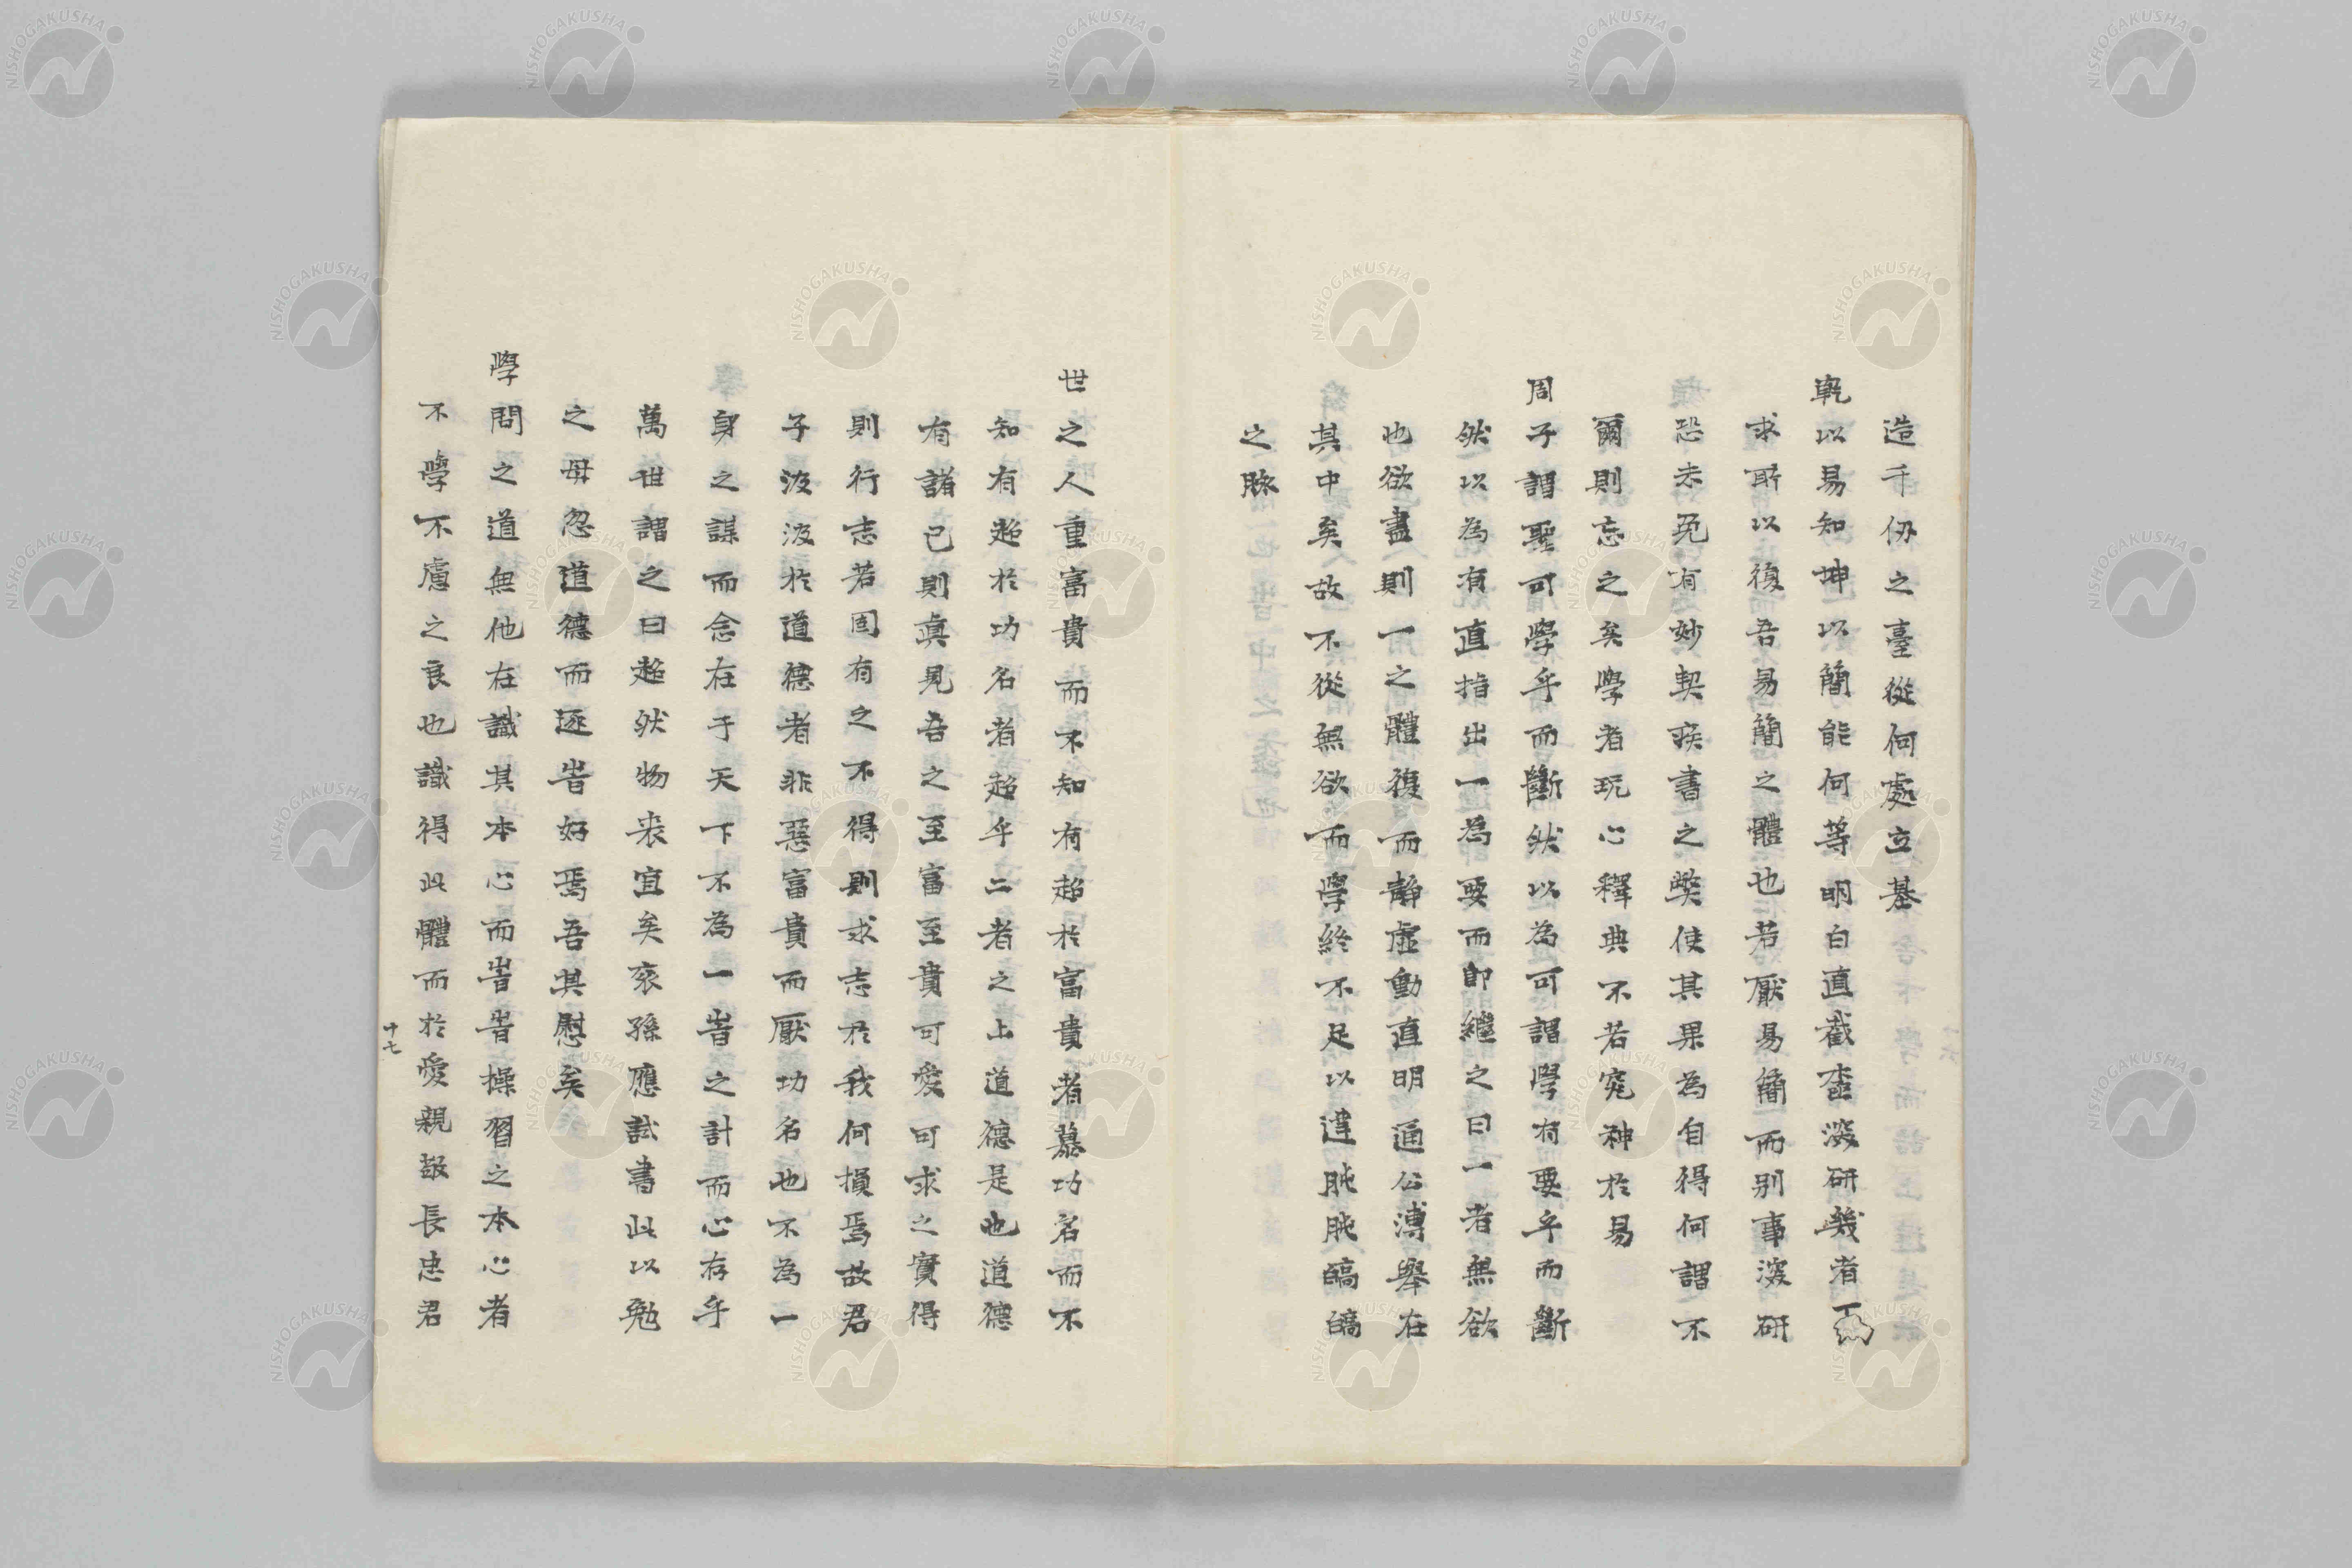 造千仞之臺從何處立基
乾以易知坤以簡能何等明白直截奎深研幾者
求所以復吾易簡之體也若厭易簡而別事深研
恐未免有妙契疾書之獘使其果為自得何謂不
爾則忘之矣學者玩心釋典不若究神於易
周子謂聖可學乎而斷然以為可謂學有要乎而斷
然以為有直指出一為要而即繼之曰一者無欲
也欲盡則一之體復而靜虛動直明通公溥舉在
其中矣故不從無欲而學終不足以達肫肫皜皜
之脉
世之人重富貴而不知有超於富貴者慕功名而不
知有超於功名者超乎二者之上道德是也道德
有諸己則真見吾之至富至貴可愛可求之實得
則行志若固有之不得則求志於我何損焉故君
子汲汲於道德者非惡富貴而厭功名也不為一
身之謀而念在于天下不為一旹之計而心存乎
萬世謂之曰超然物表宜矣衮孫應試書此以勉
之毋忽道德而逐旹好焉吾其慰矣
學問之道無他在識其本心而旹旹操習之本心者
不學不慮之良也識得此體而於愛親敬長忠君
十七
NISHOGAKUSHA